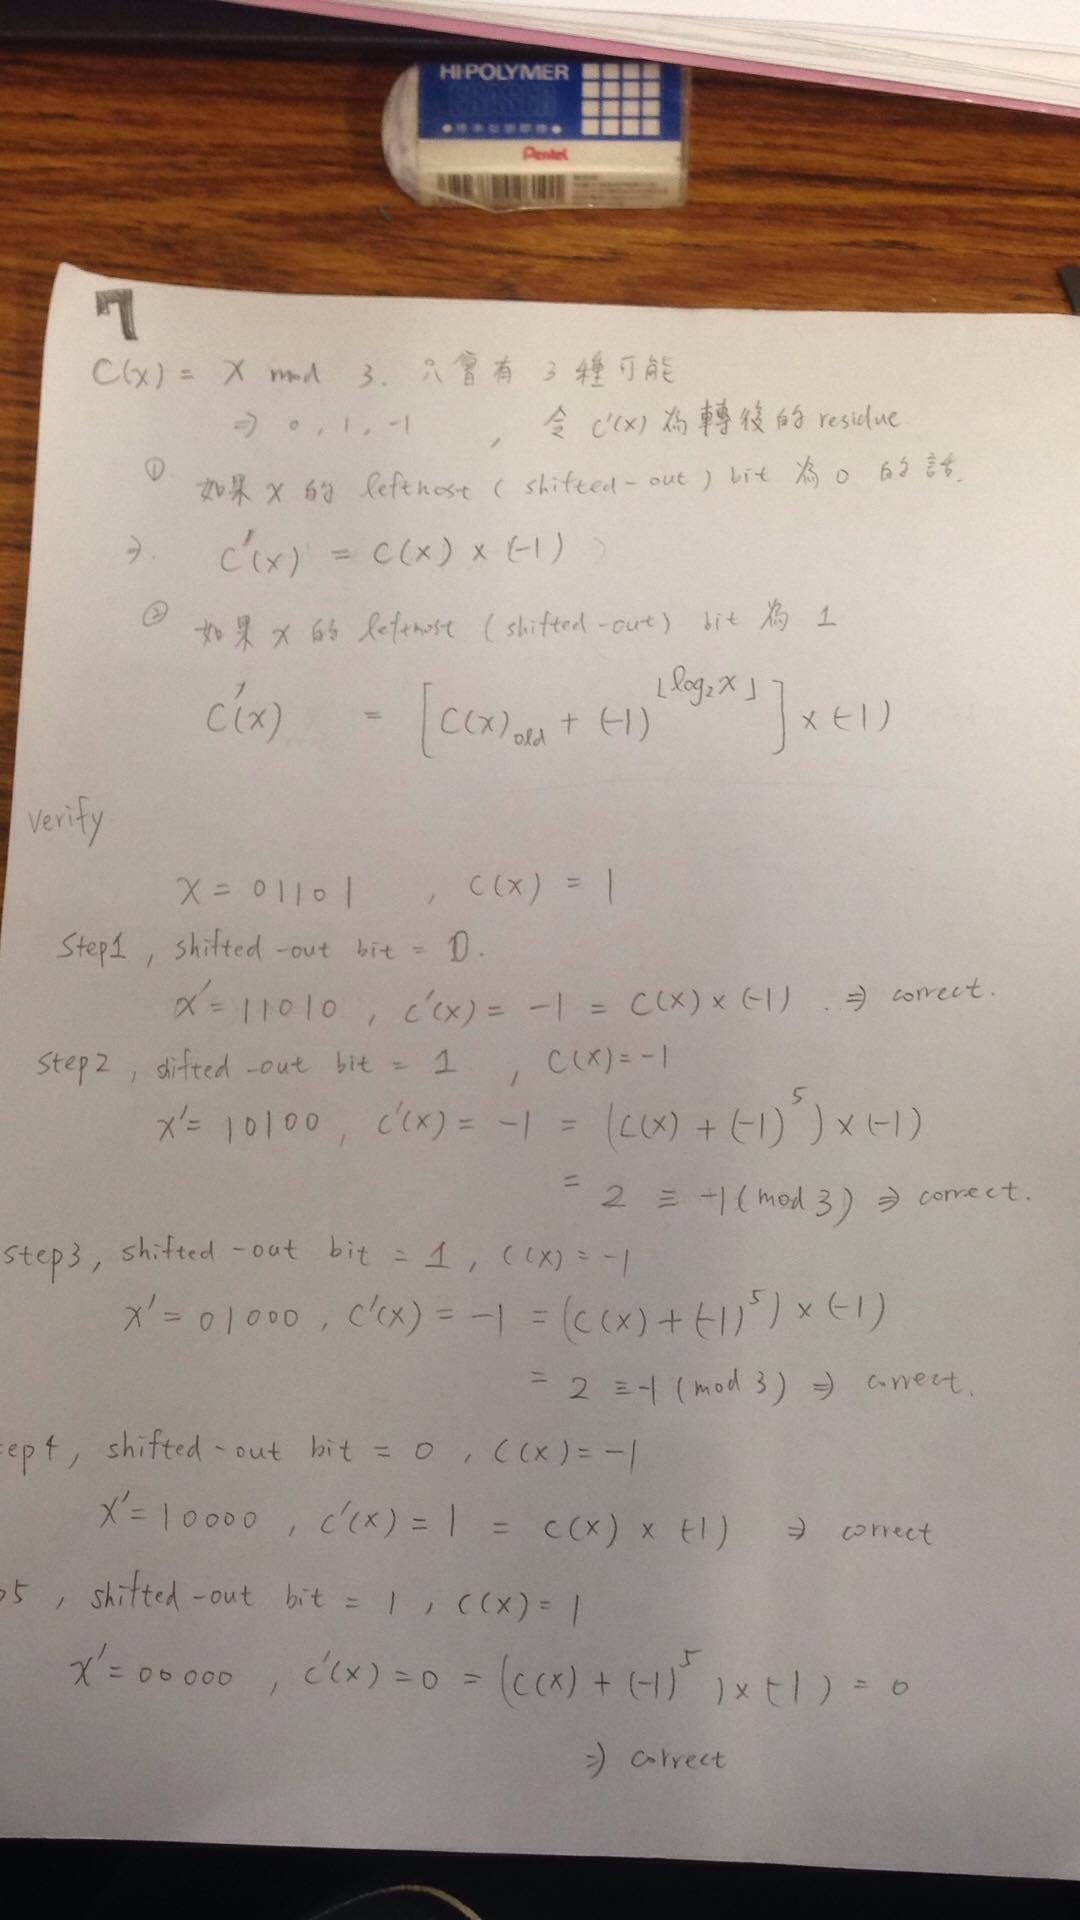 HI-POLYMER
ERASER
Pentel
7
C(x) = X mod 3. 只會有 3 種可能
⇒ 0, 1, -1 , 令 C'(x) 為轉後的 residue.
① 如果 x 的 leftmost (shifted-out) bit 為 0 的話.
⇒. C'(x) = C(x) × (-1)
② 如果 x 的 leftmost (shifted-out) bit 為 1
C'(x) = [C(x)old + (-1)^⌊log₂X⌋] × (-1)
verify
X = 01101 , C(x) = 1
Step1, shifted-out bit = 0.
X' = 11010, C'(x) = -1 = C(x) × (-1). ⇒ correct.
Step2, difted-out bit = 1 , C(x) = -1
X' = 10100, C'(x) = -1 = (C(x) + (-1)^5) × (-1)
= 2 ≡ -1 (mod 3) ⇒ correct.
Step3, shifted-out bit = 1, C(x) = -1
X' = 01000, C'(x) = -1 = (C(x) + (-1)^5) × (-1)
= 2 ≡ -1 (mod 3) ⇒ correct.
ep4, shifted-out bit = 0, C(x) = -1
X' = 10000, C'(x) = 1 = C(x) × (-1) ⇒ correct
p5, shifted-out bit = 1, C(x) = 1
X' = 00000, C'(x) = 0 = (C(x) + (-1)^5) × (-1) = 0
⇒ correct